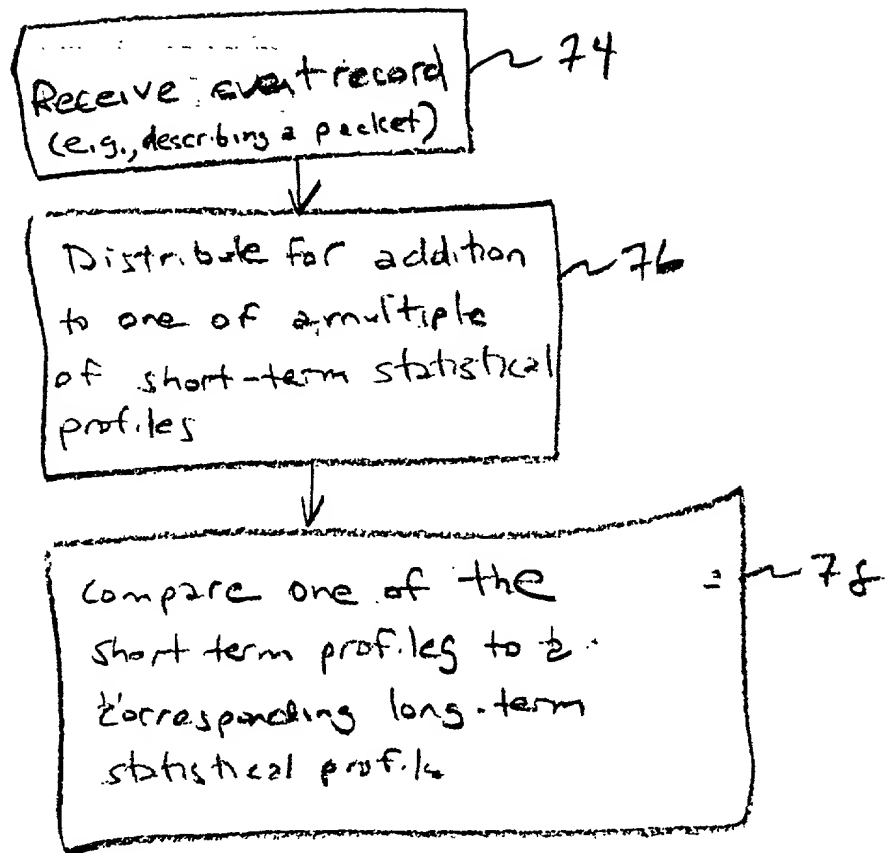 Receive event record
(e.g., describing a packet)
74
Distribute for addition
to one of a multiple
of short-term statistical
profiles
76
Compare one of the
short term profiles to a
corresponding long-term
statistical profile
78